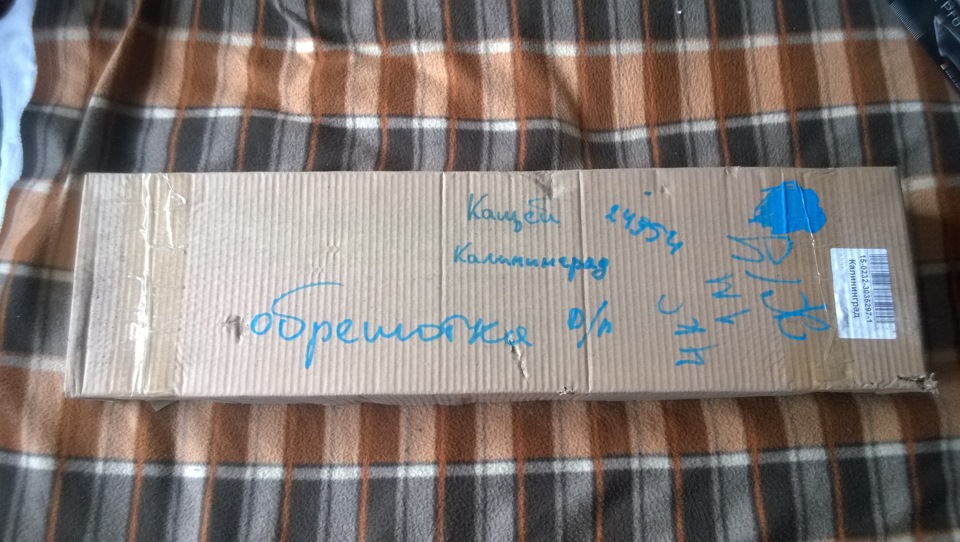 Кащей 24954
Калининград
обрешотка о/п
15-0232-3036297-1
Калининград
Pro